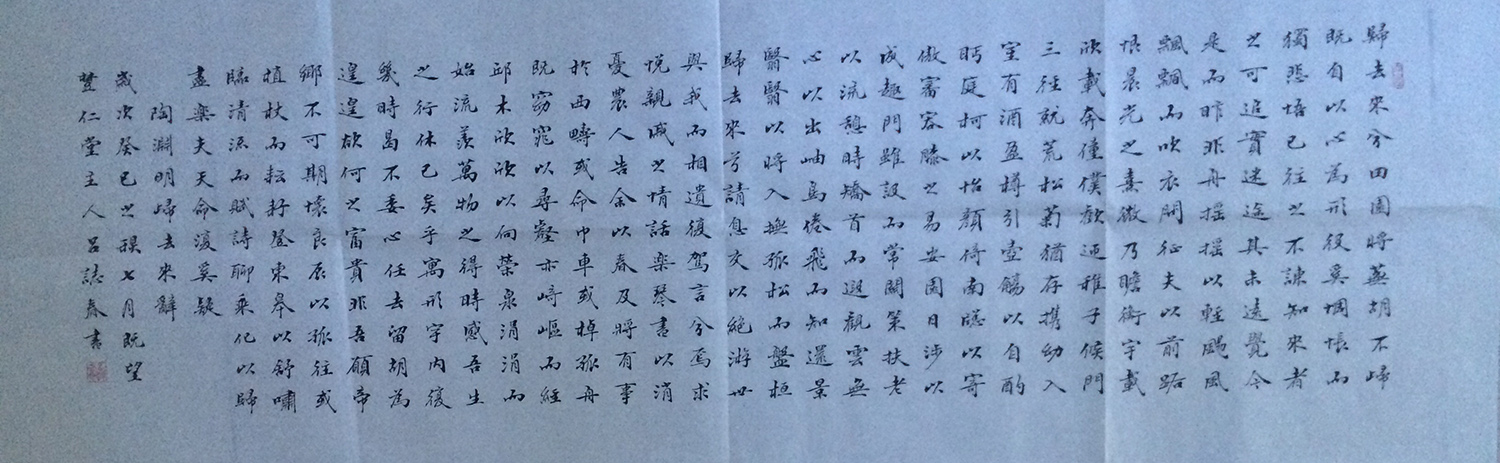 歸去來兮田園將蕪胡不歸
既自以心為形役奚惆悵而
獨悲悟已往之不諫知來者
之可追實迷途其未遠覺今
是而昨非舟摇摇以輕颺風
飄飄而吹衣問征夫以前路
恨晨光之熹微乃瞻衡宇載
欣載奔僮僕歡迎稚子候門
三徑就荒松菊猶存携幼入
室有酒盈樽引壺觴以自酌
眄庭柯以怡顔倚南牕以寄
傲審容膝之易安園日涉以
成趣門雖設而常關策扶老
以流憩時矯首而遐觀雲無
心以出岫鳥倦飛而知還景
翳翳以將入撫孤松而盤桓
歸去來兮請息交以絕游世
與我而相遺復駕言兮焉求
悅親戚之情話楽琴書以消
憂農人告余以春及將有事
於西疇或命巾車或棹孤舟
既窈窕以尋壑亦崎嶇而經
邱木欣欣以向榮泉涓涓而
始流羨萬物之得時感吾生
之行休已矣乎寓形宇內復
幾時曷不委心任去留胡為
遑遑欲何之富貴非吾願帝
鄉不可期懷良辰以孤往或
植杖而耘耔登東皋以舒嘯
臨清流而賦詩聊乘化以歸
盡楽夫天命復奚疑
陶淵明歸去來辭
歲次癸巳之秋七月既望
仁堂主人呂誌春書